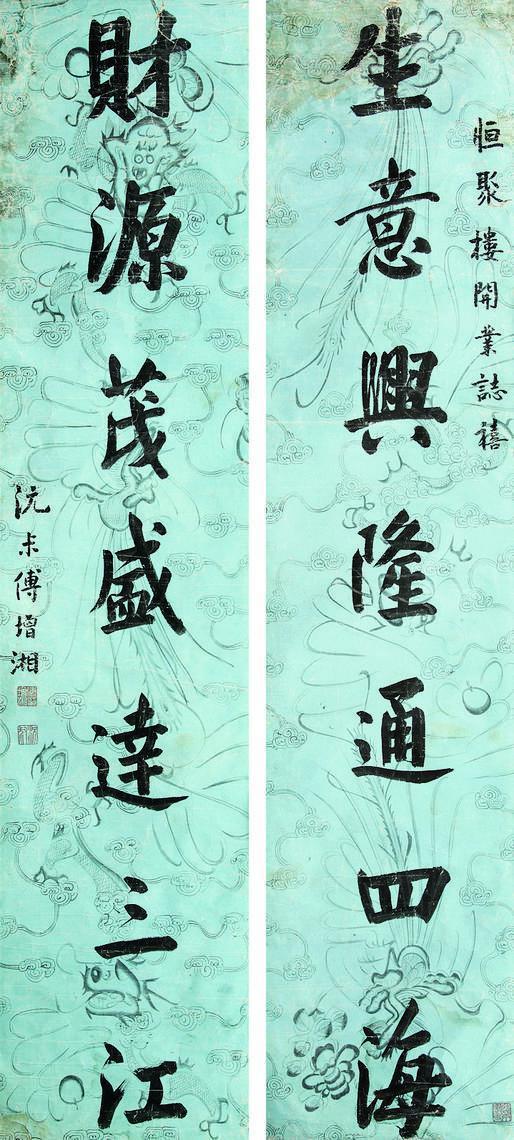 恒聚楼開業誌禧
生意興隆通四海
財源茂盛達三江
沅尗傅增湘